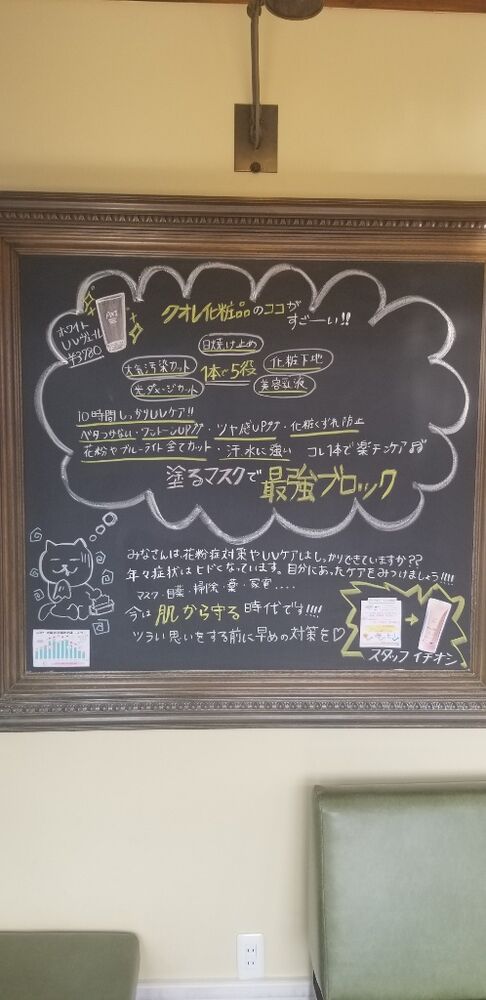 クオレ化粧品のココが
すごーい!!
ホワイト
UVヴェール
¥3780
日焼け止め
大気汚染カット
1本で5役
化粧下地
光ダメージカット
美容乳液
10時間しっかりUVケア!!
ベタつかない・ワントーンUP⤴⤴・ツヤ感UP⤴⤴・化粧くずれ防止
花粉やブルーライト全てカット・汗、水に強い コレ1本で楽チンケア♬
塗るマスクで最強ブロック
みなさんは、花粉症対策やUVケアはしっかりできていますか??
年々症状はヒドくなっています。自分にあったケアをみつけましょう!!!!
マスク・目薬・掃除・薬・家電....
今は肌から守る時代です!!!!
ツラい思いをする前に早めの対策を♡
スタッフイチオシ